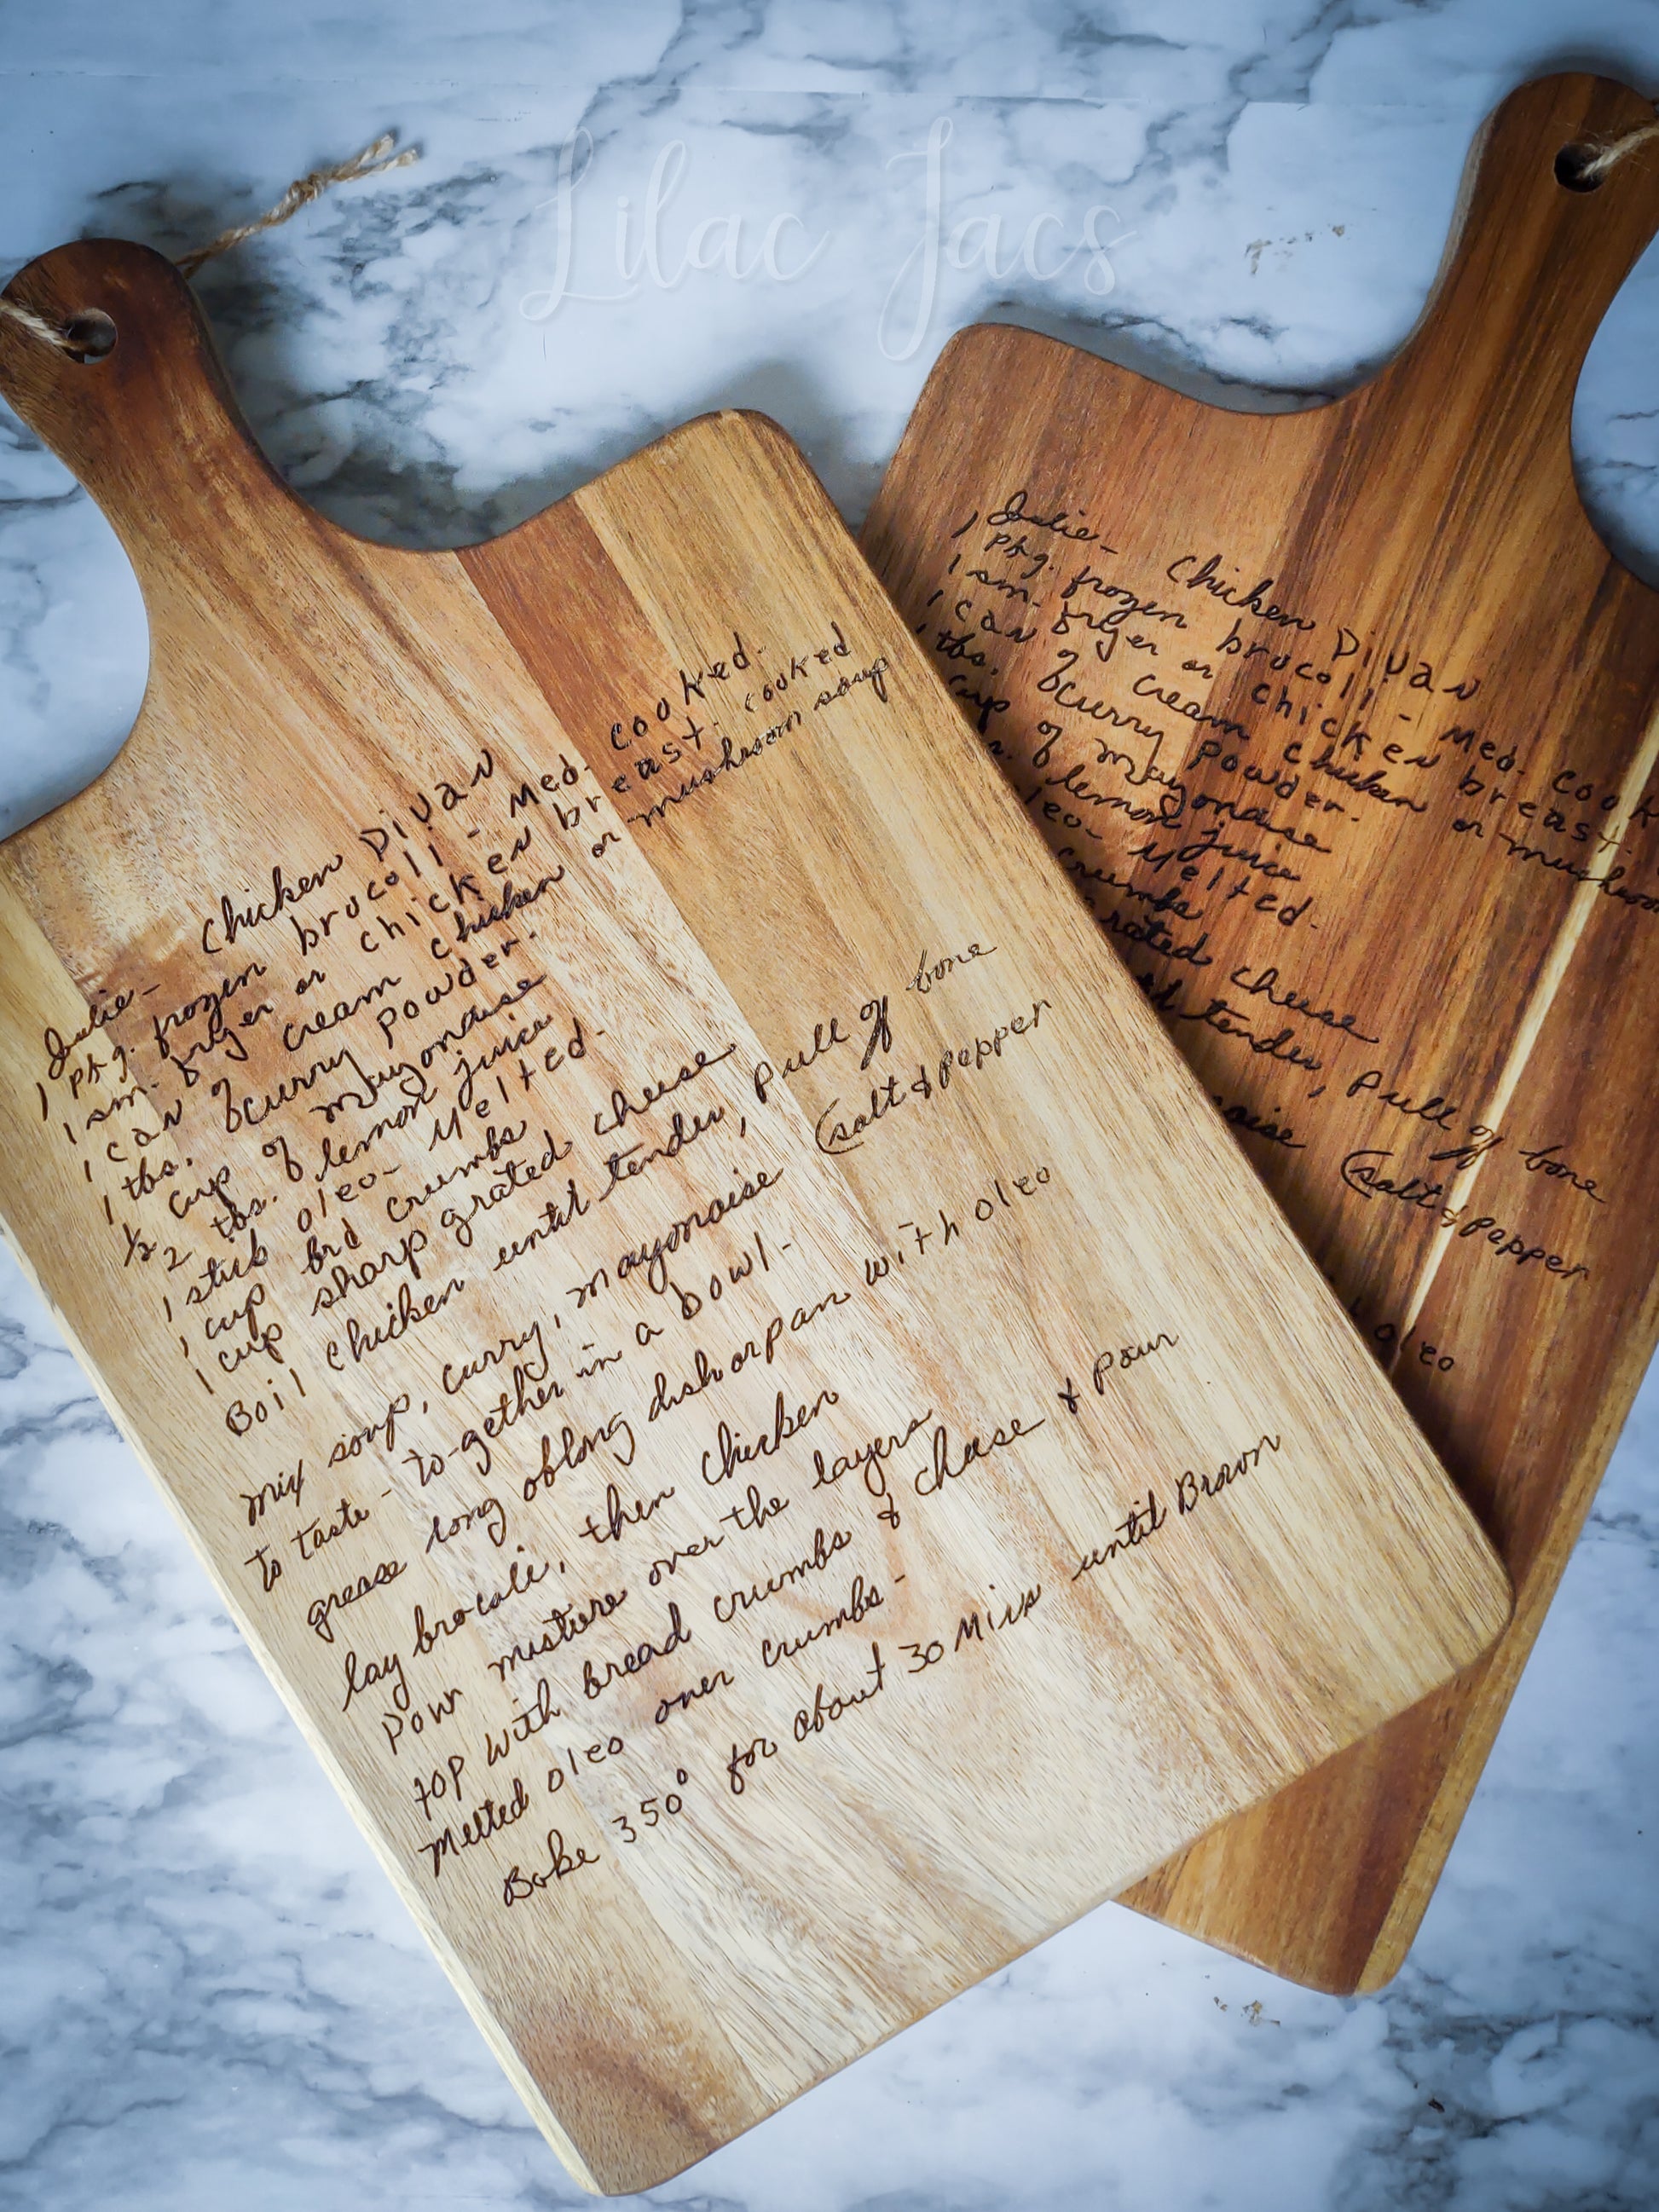 Lilac Jacs
Julie- Chicken Divan
1 pkg. frozen brocolli - Med. cooked.
1 sm. fryer or chicken breast. cooked
1 can of cream chicken or mushroom soup
1 tbs. of curry powder.
1/2 cup of mayonaise
2 tbs. of lemon juice
1 stick oleo- Melted.
1 cup brd crumbs
1 cup sharp grated cheese
Boil chicken until tender, pull of bone
mix soup, curry, mayonaise (salt & pepper
to taste - to-gether in a bowl-
grease long oblong dish or pan with oleo
lay brocoli, then chicken
Pour mixture over the layers
top with bread crumbs & cheese & pour
Melted oleo over crumbs-
Bake 350° for about 30 Mins until Brown
Julie- Chicken Divan
1 pkg. frozen brocolli - Med. cook
1 sm. fryer or chicken breast.
1 can of cream chicken or mushroom
tbs. of curry powder.
cup of mayonaise
of lemon juice
leo- Melted.
crumbs
rated cheese
tender, pull of bone
naise (salt & pepper
oleo